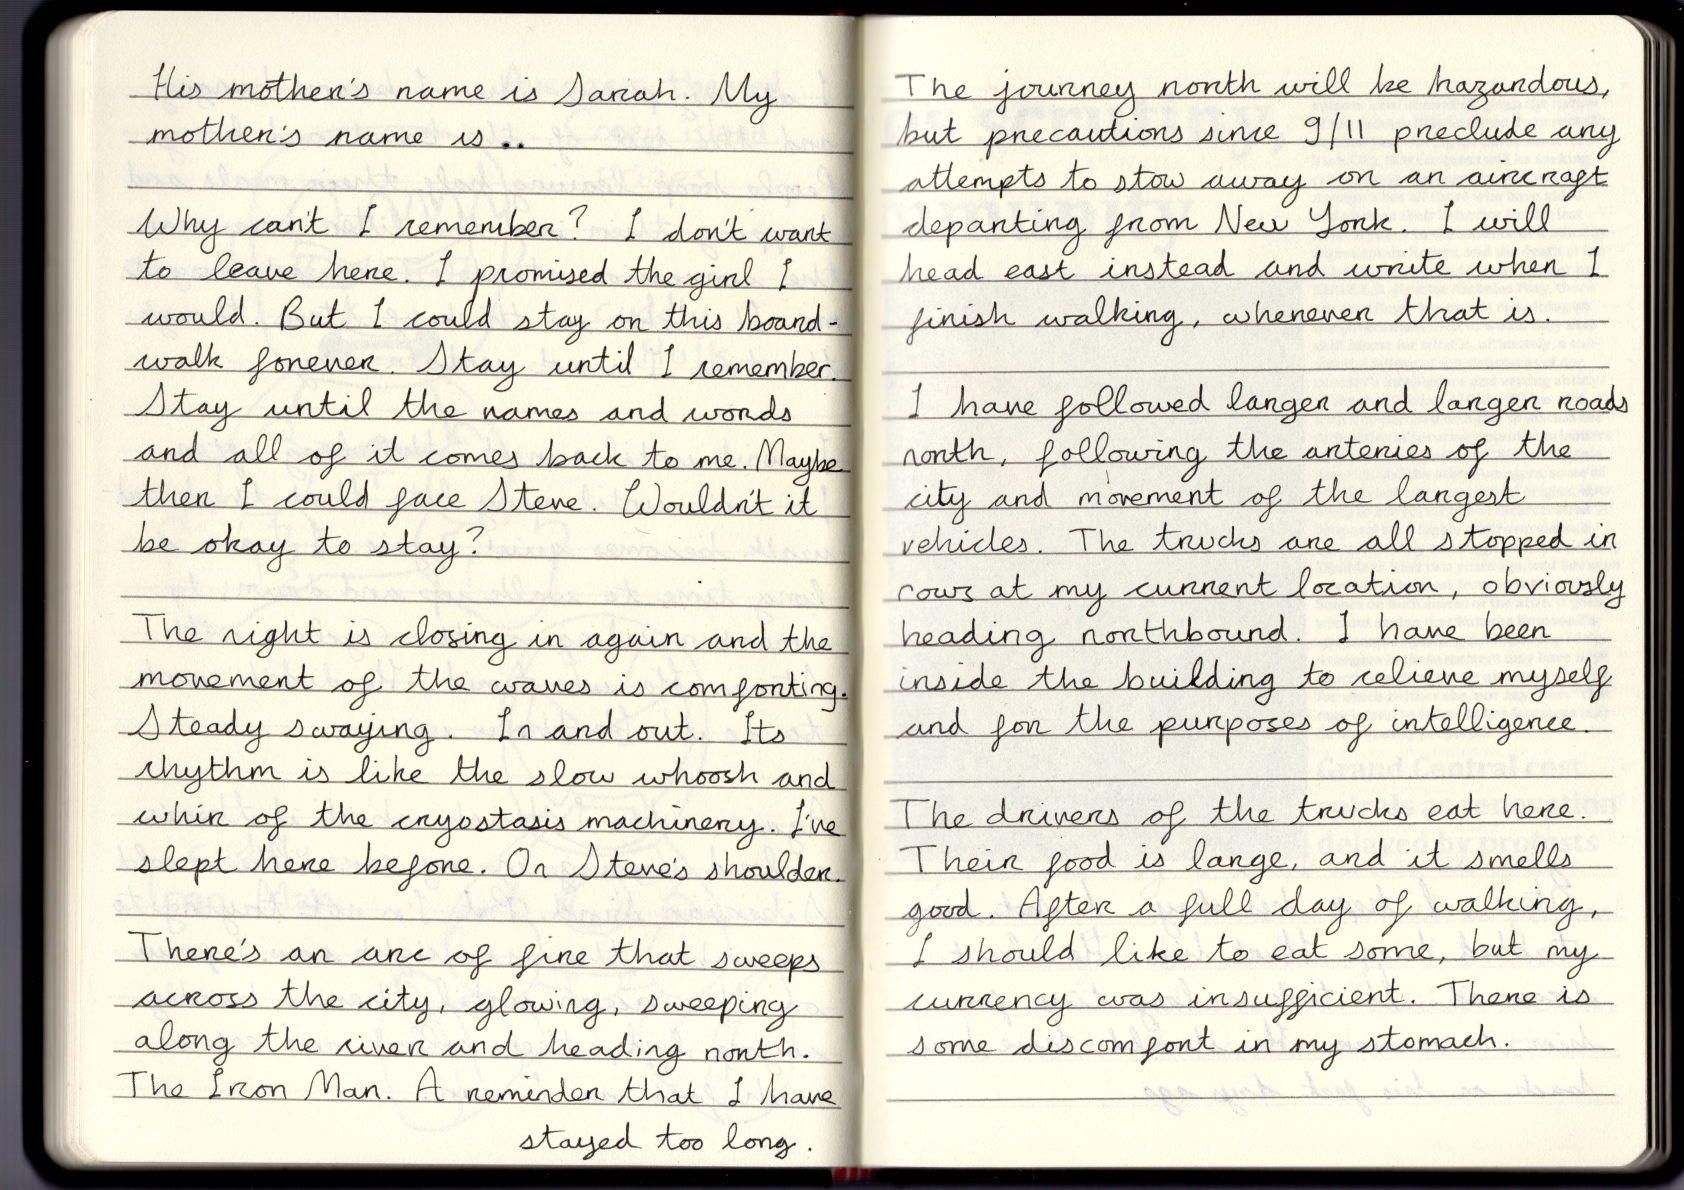 His mother's name is Sarah. My
mother's name is ..
Why can't I remember? I don't want
to leave here. I promised the girl I
would. But I could stay on this board-
walk forever. Stay until I remember.
Stay until the names and words
and all of it comes back to me. Maybe
then I could face Steve. Wouldn't it
be okay to stay?
The night is closing in again and the
movement of the waves is comforting.
Steady swaying. In and out. Its
rhythm is like the slow whoosh and
whir of the cryostasis machinery. I've
slept here before. On Steve's shoulder.
There's an arc of fire that sweeps
across the city, glowing, sweeping
along the river and heading north.
The Iron Man. A reminder that I have
stayed too long.
The journey north will be hazardous,
but precautions since 9/11 preclude any
attempts to stow away on an aircraft
departing from New York. I will
head east instead and write when I
finish walking, whenever that is.
I have followed larger and larger roads
north, following the arteries of the
city and movement of the largest
vehicles. The trucks are all stopped in
rows at my current location, obviously
heading northbound. I have been
inside the building to relieve myself
and for the purposes of intelligence.
The drivers of the trucks eat here.
Their food is large, and it smells
good. After a full day of walking,
I should like to eat some, but my
currency was insufficient. There is
some discomfort in my stomach.